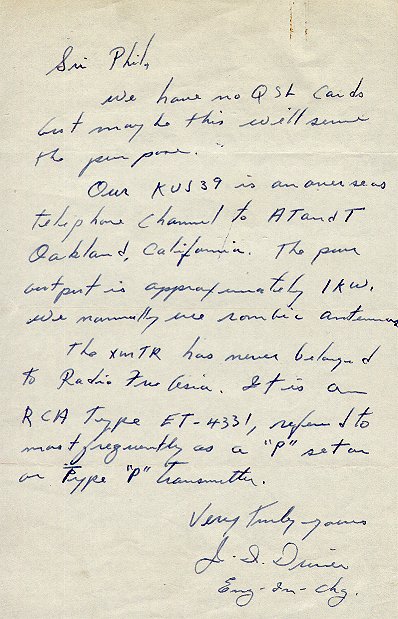 Sir Phil,
We have no QSL cards
but maybe this will serve
the purpose.
Our KUS39 is an overseas
telephone channel to AT and T
Oakland, California. The pwr
output is approximately 1KW.
We normally use rombic antennas
The xmTR has never belonged
to Radio Free Asia. It is an
RCA Type ET-4331, referred to
most frequently as a "P" set or
or Type "P" transmitter.
Very Truly yours
J. I.
Eng-In-Chg.